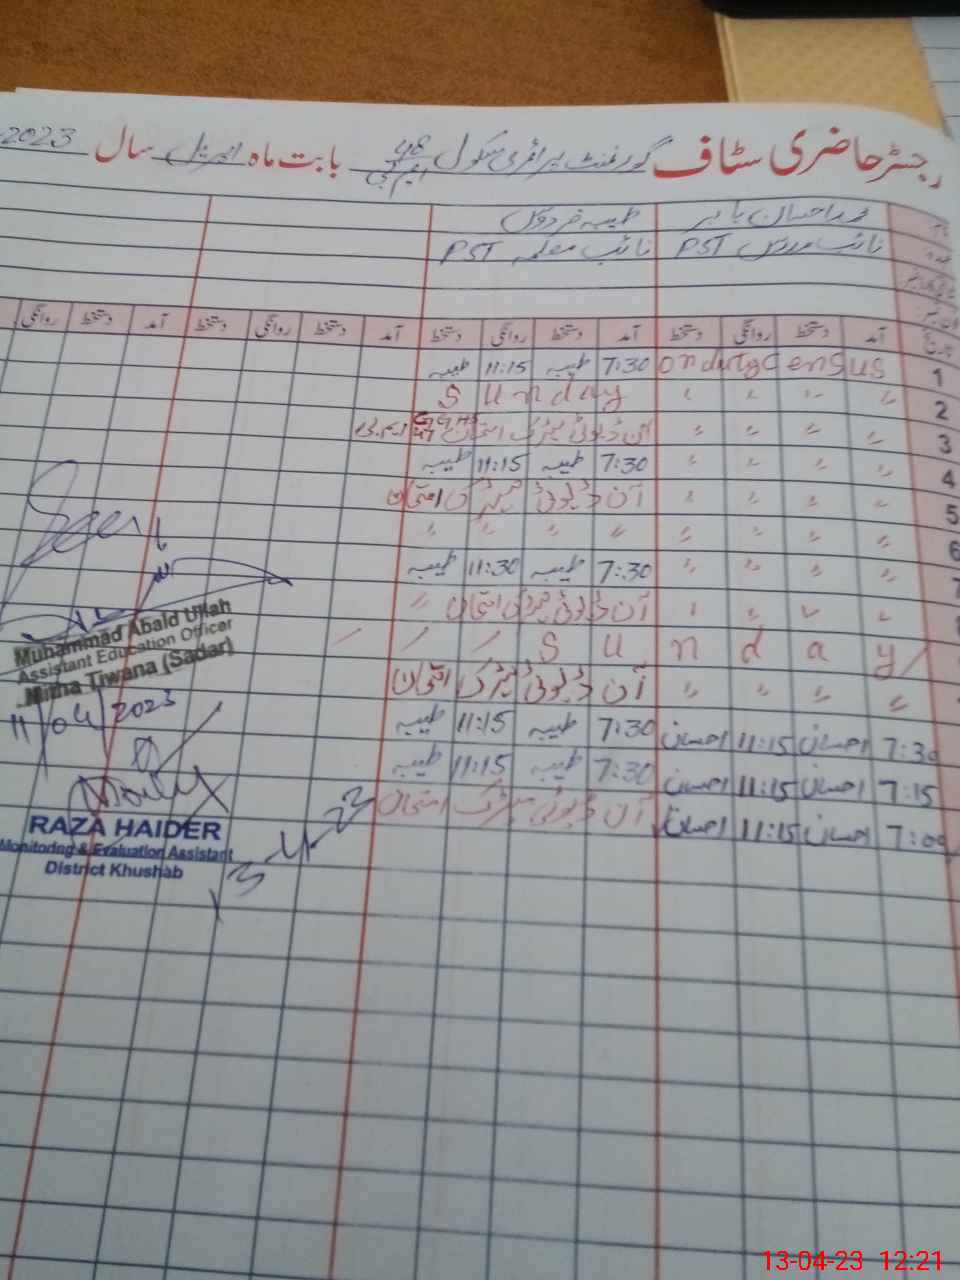 رجسٹر حاضری سٹاف گورنمنٹ پرائمری سکول 48 ایم بی بابت ماہ اپریل سال 2023
محمد احسان بابر طیبہ فردوس
نائب مدرس PST نائب معلمہ PST
تاریخ آمد دستخط روانگی دستخط آمد دستخط روانگی دستخط آمد دستخط روانگی دستخط آمد دستخط روانگی
1 on duty Census 7:30 طیبہ 11:15 طیبہ
2 〃 〃 〃 〃 Sunday
3 〃 〃 〃 〃 آن ڈیوٹی میٹرک امتحان
4 〃 〃 〃 〃 7:30 طیبہ 11:15 طیبہ
5 〃 〃 〃 〃 آن ڈیوٹی میٹرک امتحان
6 〃 〃 〃 〃 〃 〃 〃 〃
7 〃 〃 〃 〃 7:30 طیبہ 11:30 طیبہ
〃 〃 〃 〃 آن ڈیوٹی میٹرک امتحان 〃
Sunday
〃 〃 〃 〃 آن ڈیوٹی میٹرک امتحان
7:30 احسان 11:15 احسان 7:30 طیبہ 11:15 طیبہ
7:15 احسان 11:15 احسان 7:30 طیبہ 11:15 طیبہ
7:00 احسان 11:15 احسان آن ڈیوٹی میٹرک امتحان
Seen
Muhammad Abaid Ullah
Assistant Education Officer
Mitha Tiwana (Sadar)
11/04/2023
RAZA HAIDER
Monitoring & Evaluation Assistant
District Khushab
13-4-23
13-04-23 12:21